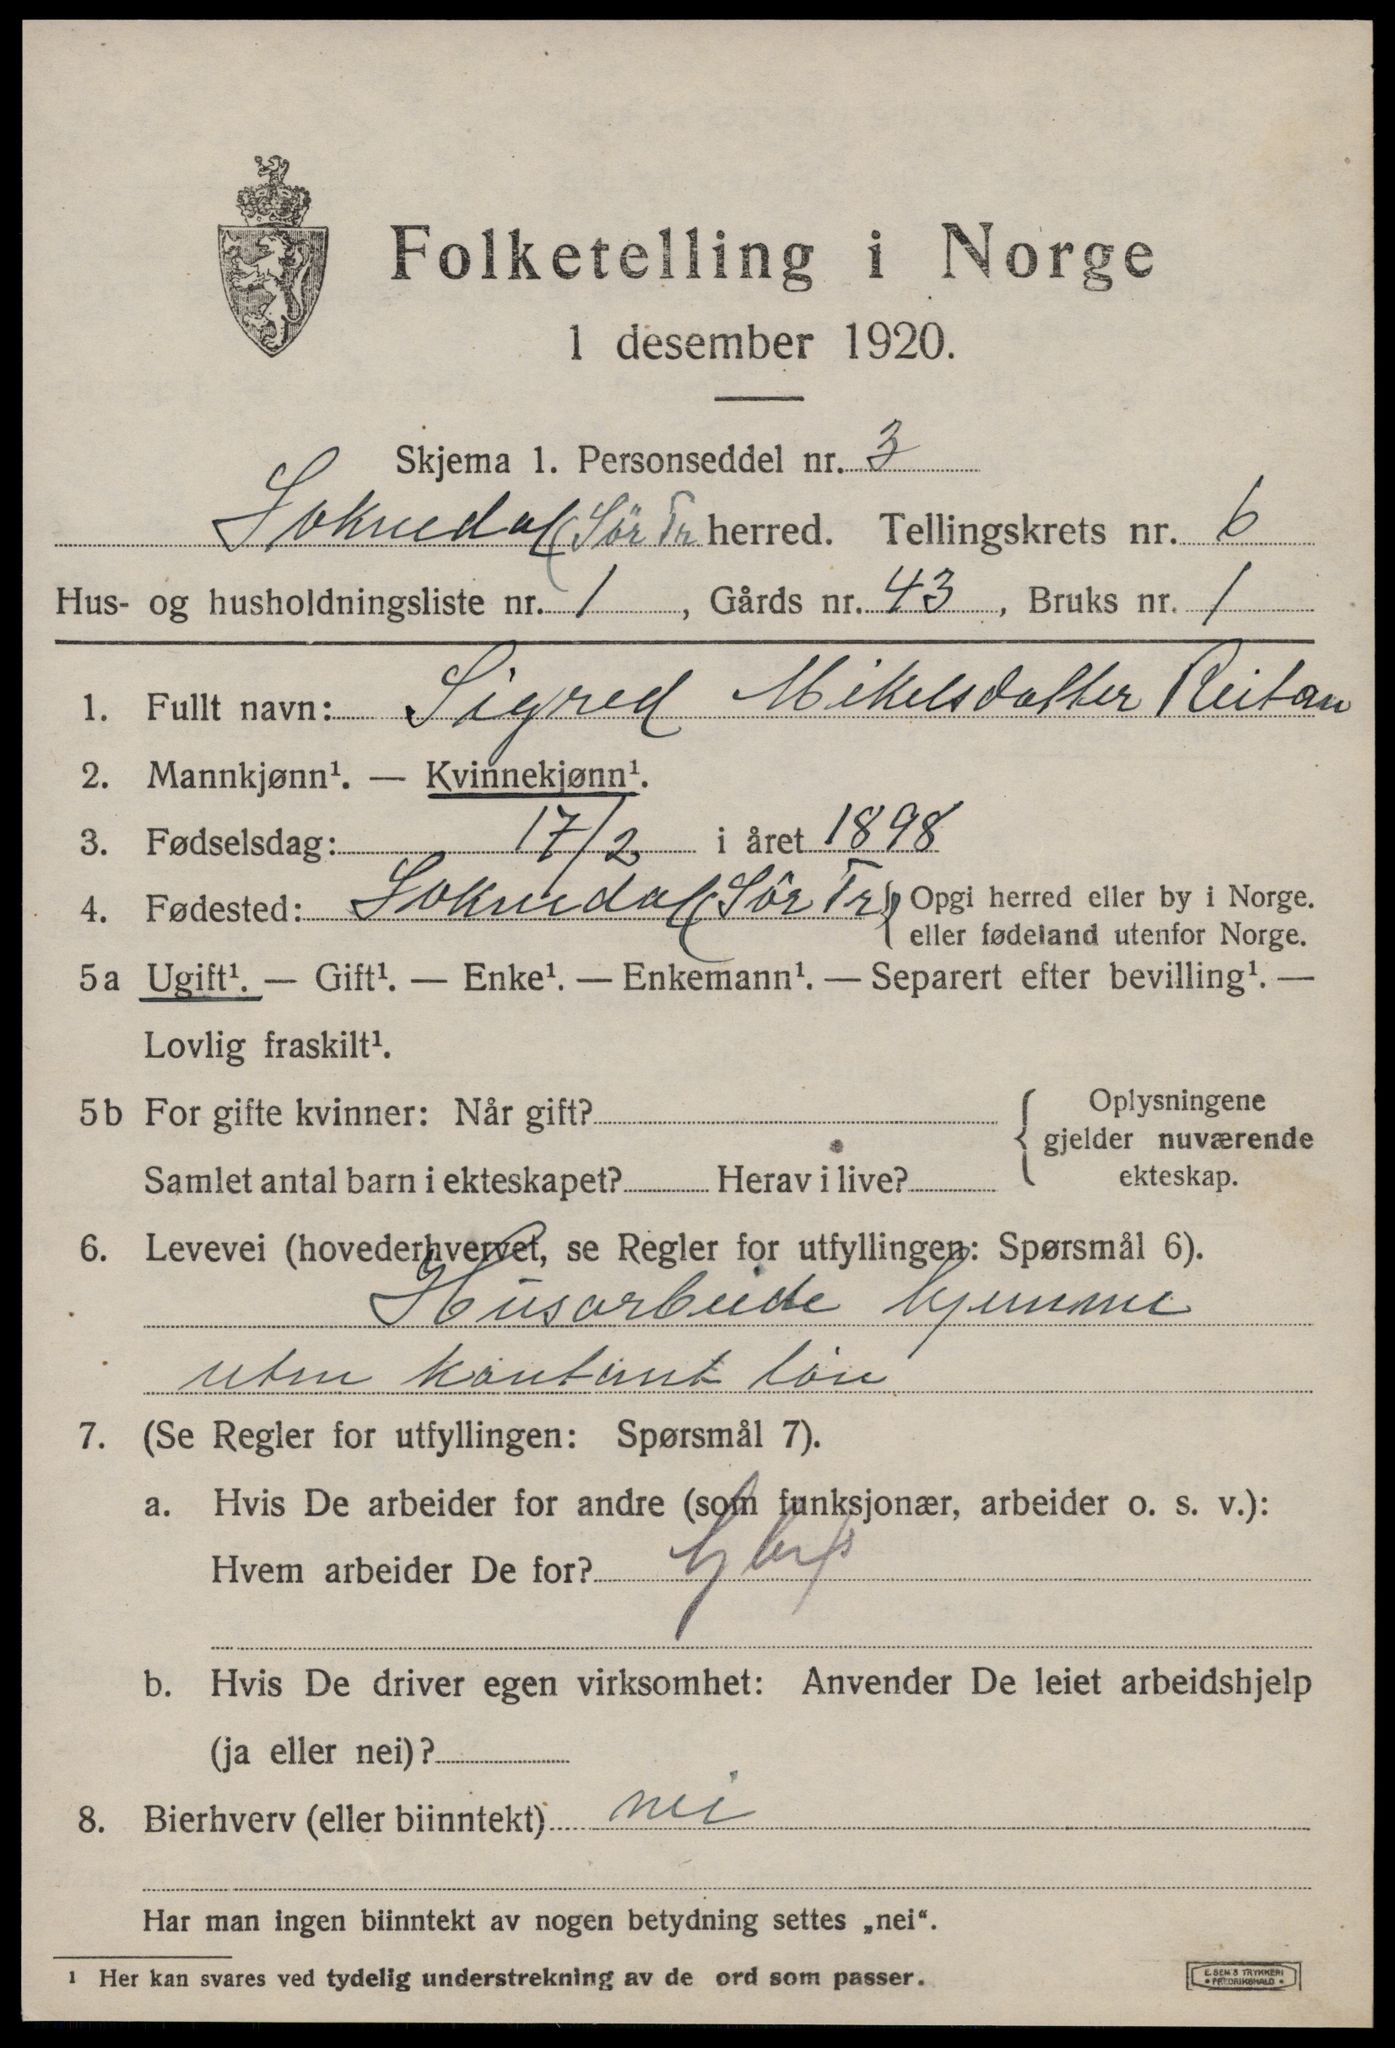 Folketelling i Norge
1 desember 1920.
Skjema 1. Personseddel nr. 3
Soknedal (Sör Tr herred. Tellingskrets nr. 6
Hus- og husholdningsliste nr. 1, Gårds nr. 43, Bruks nr. 1
1. Fullt navn: Sigred Mikelsdatter Reitan
2. Mannkjønn¹. — Kvinnekjønn¹.
3. Fødselsdag: 17/2 i året 1898
4. Fødested: Soknedal (Sör Tr) { Opgi herred eller by i Norge.
eller fødeland utenfor Norge.
5a Ugift¹. — Gift¹. — Enke¹. — Enkemann¹. — Separert efter bevilling¹. —
Lovlig fraskilt¹.
5b For gifte kvinner: Når gift? { Oplysningene
gjelder nuværende
ekteskap.
Samlet antal barn i ekteskapet? Herav i live?
6. Levevei (hovederhvervet, se Regler for utfyllingen: Spørsmål 6).
Husarbeide hjemme
uten kontant løn
7. (Se Regler for utfyllingen: Spørsmål 7).
a. Hvis De arbeider for andre (som funksjonær, arbeider o. s. v.):
Hvem arbeider De for?
b. Hvis De driver egen virksomhet: Anvender De leiet arbeidshjelp
(ja eller nei)?
8. Bierhverv (eller biinntekt) nei
Har man ingen biinntekt av nogen betydning settes „nei“.
¹ Her kan svares ved tydelig understrekning av de ord som passer.
E. SEM'S TRYKKERI
• FREDRIKSHALD •